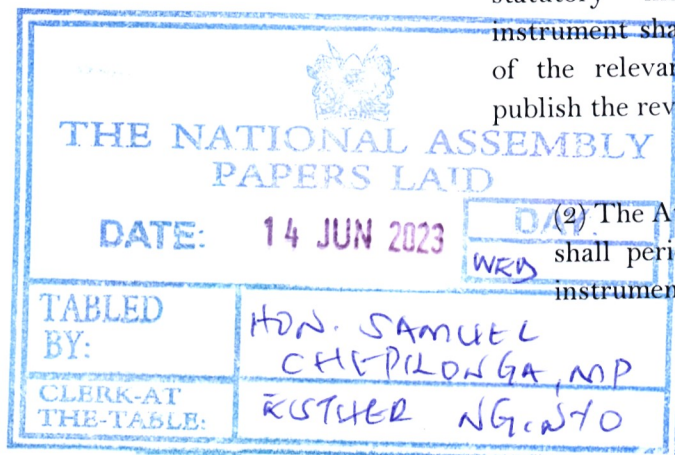 instrument sha
of the relevan
publish the rev
THE NATIONAL ASSEMBLY
PAPERS LAID
DATE: 14 JUN 2023
DAY:
WED
(2) The A
shall peri
instrumen
TABLED BY:
HON. SAMUEL
CHEPILONGA, MP
CLERK-AT
THE-TABLE:
ESTHER